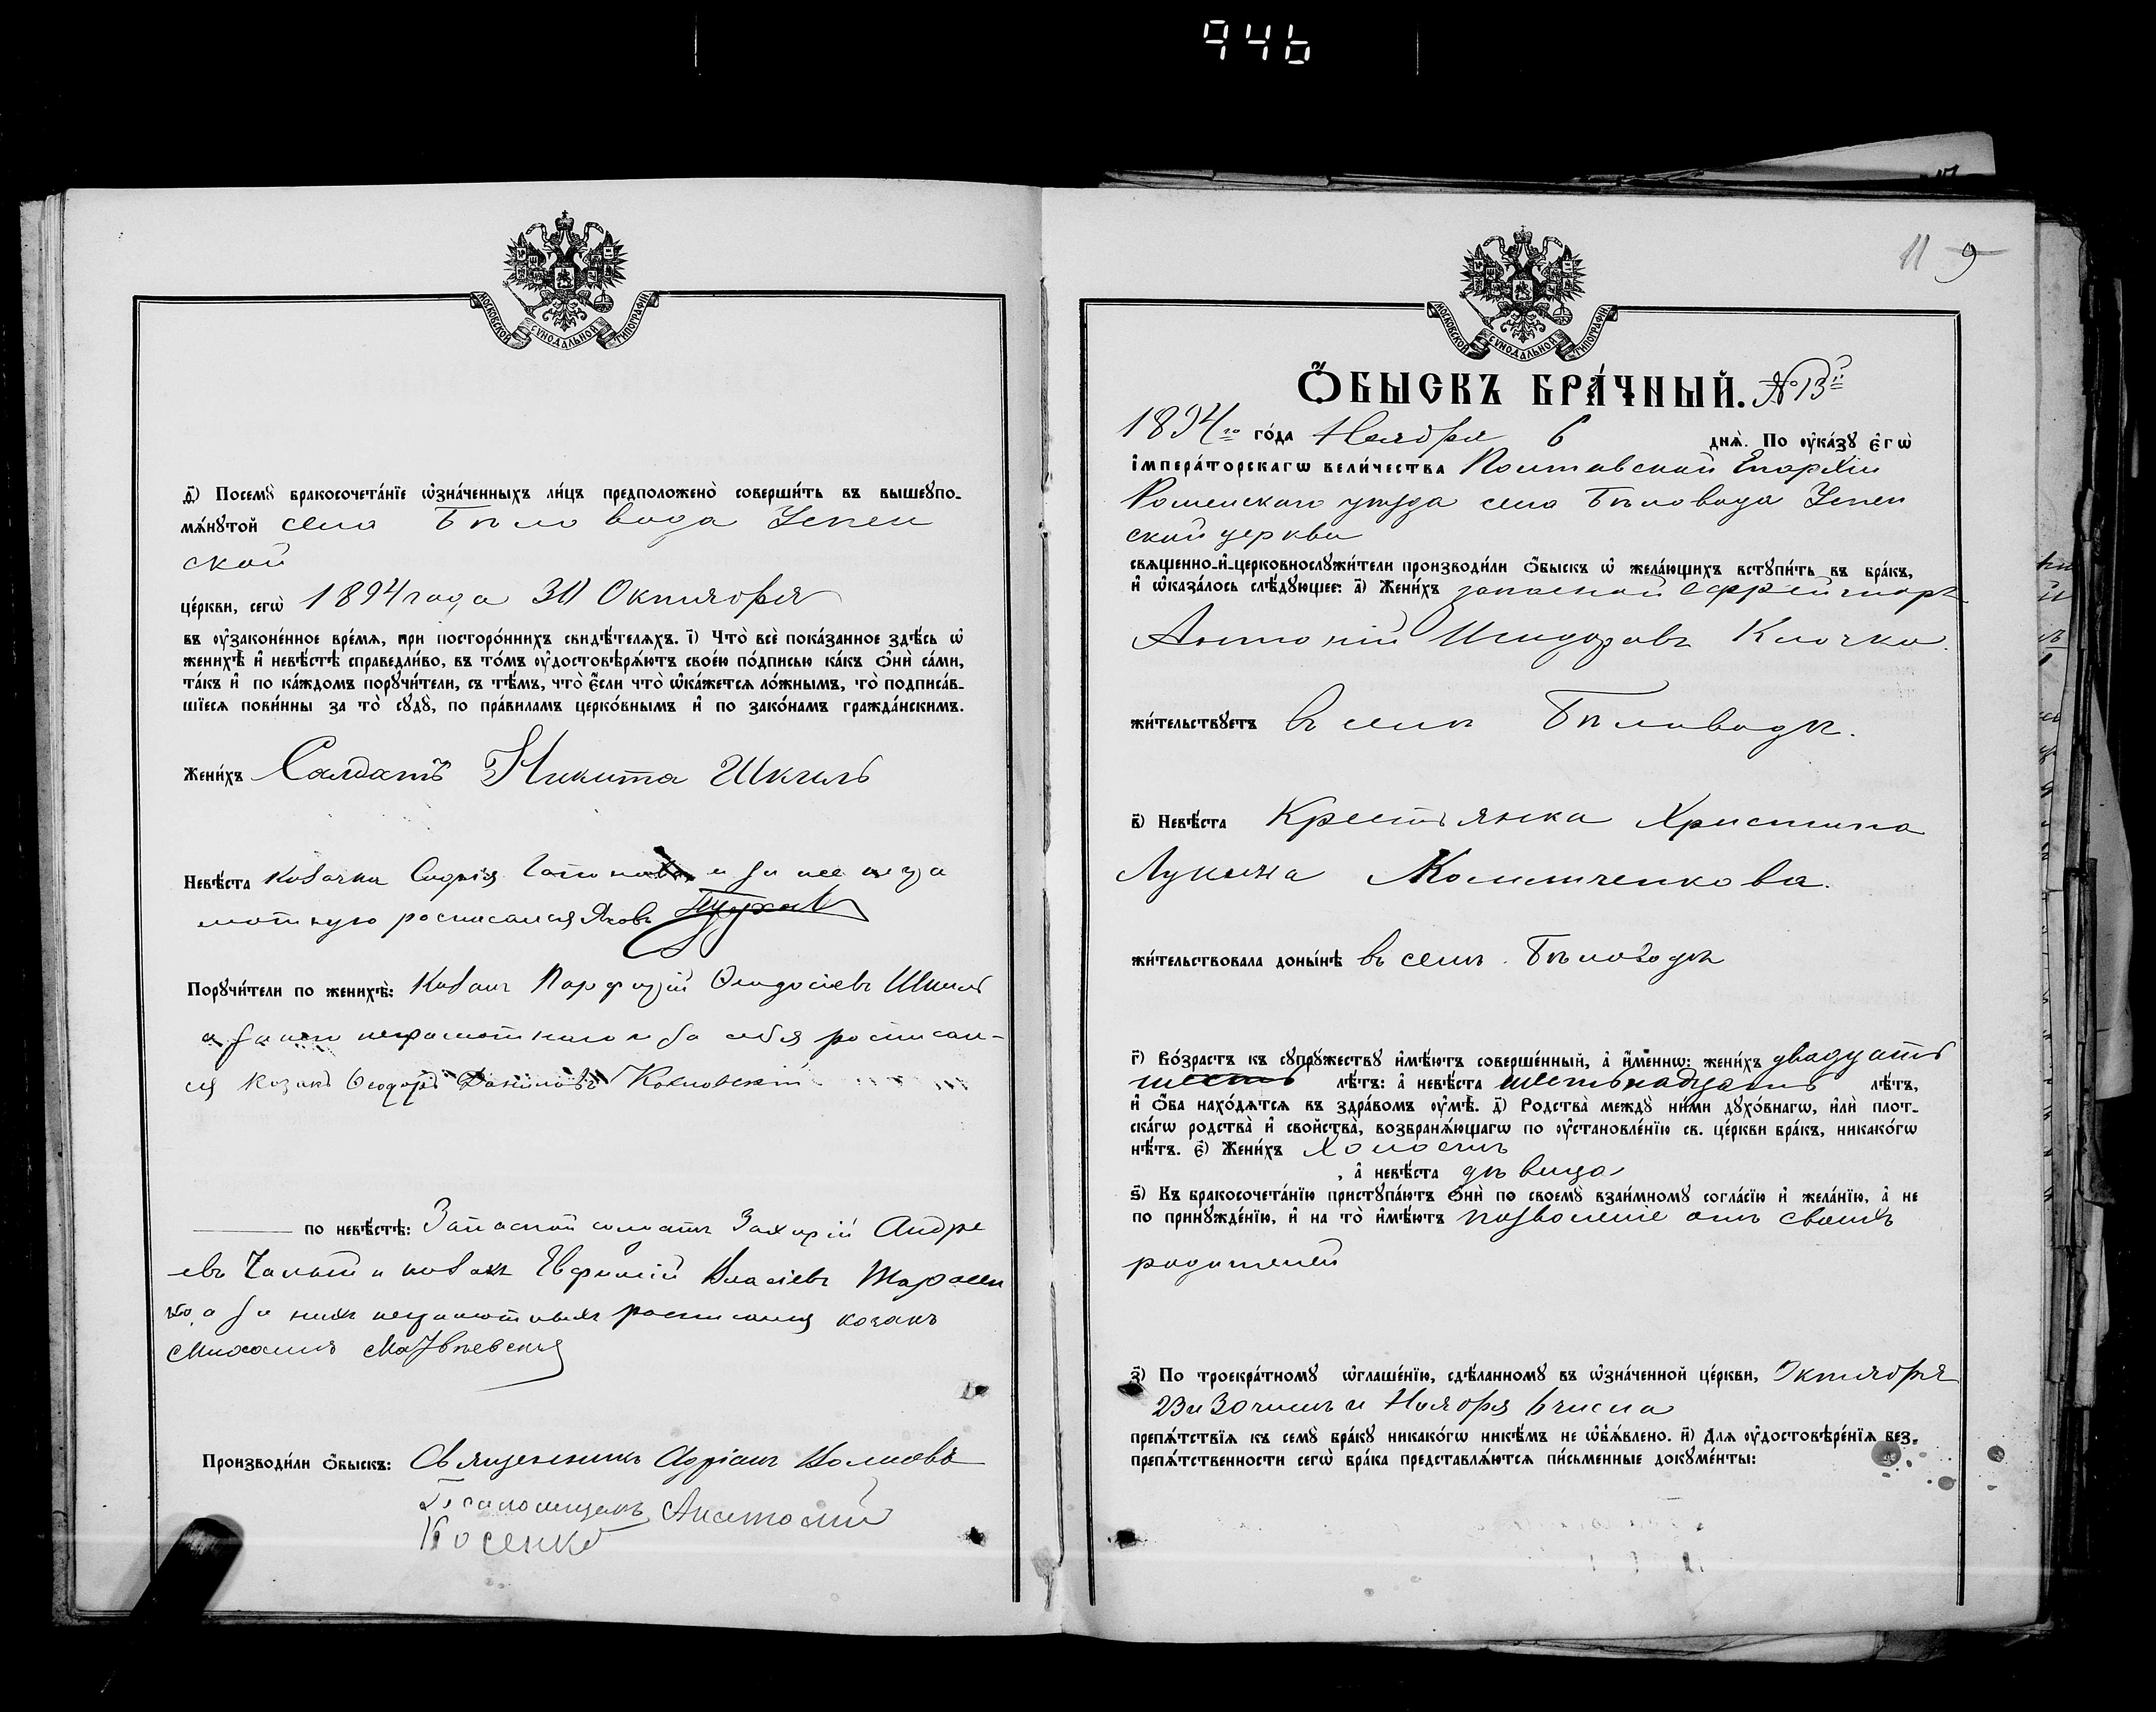 946
МОСКОВСКОЙ СѴНОДАЛЬНОЙ ТИПОГРАФІИ
д҃) Посемꙋ̀ бракосочета́нїе ѡ҆зна́ченныхъ ли́цъ предположено̀ соверши́ть въ вышеꙋпо-
мѧ́нꙋтой села Бѣловода Успен
ской
це́ркви, сегѡ̀ 1894 года 30 Октября
въ ᲂу҆законе́нное вре́мѧ, при посторо́ннихъ свидѣ́телѧхъ. і҃) Что̀ всѐ пока́занное здѣ́сь ѡ҆
женихѣ̀ и҆ невѣ́стѣ справедли́во, въ то́мъ ᲂу҆достовѣрѧ́ютъ свое́ю по́дписью ка́къ ѻ҆нѝ са́ми,
та́къ и҆ по ка́ждомъ порꙋчи́тели, съ тѣ́мъ, что̀ є҆́сли что̀ ѡ҆ка́жетсѧ ло́жнымъ, то̀ подписа́в-
шїесѧ пови́нны за то̀ сꙋдꙋ̀, по пра́виламъ церко́внымъ и҆ по зако́намъ гражда́нскимъ.
Жени́хъ Салдатъ Никита Шкиль
Невѣ́ста козачка Софія а за нее негра
мотную росписался Яковъ
Порꙋчи́тели по женихѣ̀: Козакъ Парфирій Феодосіевъ Шкиль
а за него неграмотнаго и за себя росписал-
ся козакъ Феодоръ Даниловъ
по невѣ́стѣ: Запасной солдатъ Захарій Андре
евъ и козакъ Евфимій Власіевъ Тарасен
ко, а за нихъ неграмотныхъ росписался козакъ
Михаилъ
Производи́ли ѻ҆́быскъ: Священникъ Адріанъ
Псаломщикъ Анатолій
Косенко
11 9
МОСКОВСКОЙ СѴНОДАЛЬНОЙ ТИПОГРАФІИ
Ѻ҆́БЫСКЪ БРА́ЧНЫЙ. № 13й
1894го го́да Ноября 6 днѧ̀. По ᲂу҆ка́зꙋ є҆гѡ̀
і҆мпера́торскагѡ вели́чества Полтавской Епархіи
Роменскаго уѣзда села Бѣловода Успен
ской церкви
свѧщенно-и҆-церковнослꙋжи́тели производи́ли ѻ҆́быскъ ѡ҆ жела́ющихъ встꙋпи́ть въ бра́къ,
и҆ ѡ҆каза́лось слѣ́дꙋющее: а҃) Жени́хъ запасной ефрейторъ
Антоній Исидоровъ Клочко.
жи́тельствꙋетъ въ селѣ Бѣловодѣ.
в҃) Невѣ́ста Крестьянка Христина
Лукина
жи́тельствовала доны́нѣ въ селѣ Бѣловодѣ
г҃) Во́зрастъ къ сꙋпрꙋ́жествꙋ и҆мѣ́ютъ соверше́нный, а҆ и҆́меннѡ: жени́хъ двадцать
шесть лѣ́тъ: а҆ невѣ́ста шестьнадцать лѣ́тъ,
и҆ ѻ҆́ба нахо́дѧтсѧ въ здра́вомъ ᲂу҆мѣ̀. д҃) Родства̀ междꙋ̀ ни́ми дꙋхо́внагѡ, и҆лѝ плот-
ска́гѡ родства̀ и҆ сво́йства̀, возбранѧ́ющагѡ по ᲂу҆становле́нїю св. це́ркви бра́къ, никако́гѡ
нѣ́тъ. є҃) Жени́хъ Холостъ
, а҆ невѣ́ста дѣвица
ѕ҃) Къ бракосочета́нїю пристꙋпа́ютъ ѻ҆нѝ по своемꙋ̀ взаи́мномꙋ согла́сїю и҆ жела́нїю, а҆ не
по принꙋжде́нїю, и҆ на то̀ и҆мѣ́ютъ позволеніе отъ своихъ
родителей
з҃) По троекра́тномꙋ ѡ҆глаше́нїю, сдѣ́ланномꙋ въ ѡ҆зна́ченной це́ркви, Октября
23 и 30 числъ и Ноября 6 числа
препѧ́тствїѧ къ семꙋ̀ бра́кꙋ никако́гѡ никѣ́мъ не ѡ҆б̾ѧ́влено. и҃) Длѧ ᲂу҆достовѣре́нїѧ без-
препѧ́тственности сегѡ̀ бра́ка представлѧ́ютсѧ пи́сьменные докꙋме́нты: